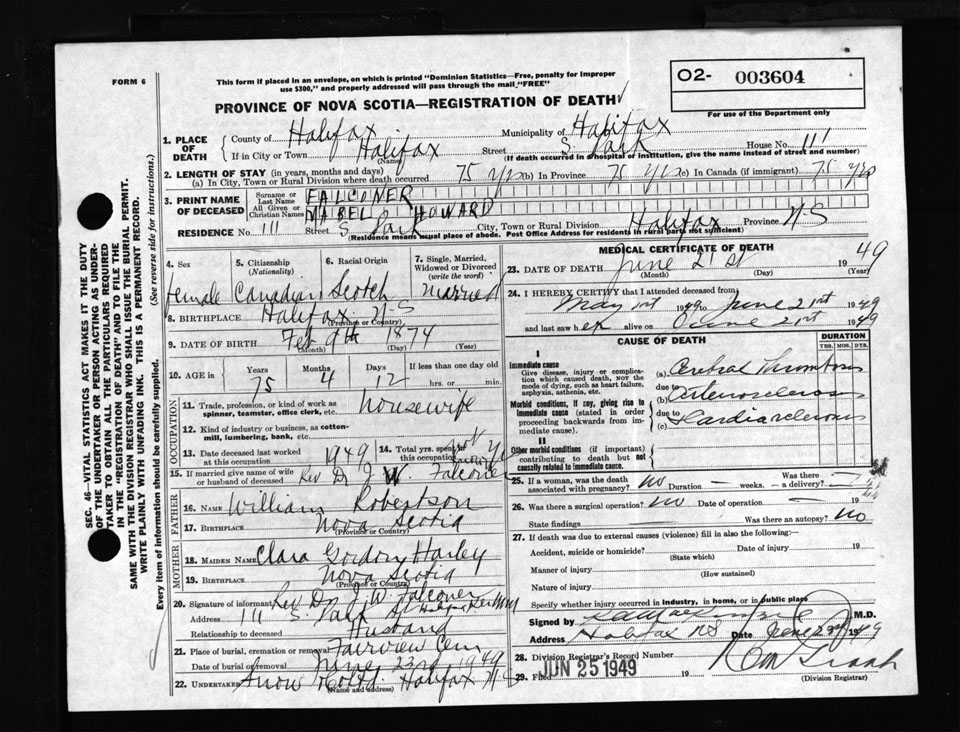 FORM 6
This form if placed in an envelope, on which is printed "Dominion Statistics—Free, penalty for improper
use $300," and properly addressed will pass through the mail "FREE"
O2- 003604
For use of the Department only
PROVINCE OF NOVA SCOTIA—REGISTRATION OF DEATH
SEC. 46—VITAL STATISTICS ACT MAKES IT THE DUTY
OF THE UNDERTAKER OR PERSON ACTING AS UNDER-
TAKER TO OBTAIN ALL THE PARTICULARS REQUIRED
IN THE "REGISTRATION OF DEATH" AND TO FILE THE
SAME WITH THE DIVISION REGISTRAR WHO SHALL ISSUE THE BURIAL PERMIT.
WRITE PLAINLY WITH UNFADING INK. THIS IS A PERMANENT RECORD.
Every item of information should be carefully supplied. (See reverse side for instructions.)
1. PLACE OF DEATH
County of Halifax Municipality of Halifax
If in City or Town Halifax Street S. Park House No. 111
(Name) (If death occurred in hospital or institution, give the name instead of street and number)
2. LENGTH OF STAY (in years, months and days)
(a) In City, Town or Rural Division where death occurred 75 yrs (b) In Province 75 yrs (c) In Canada (if immigrant) 75 yrs
3. PRINT NAME OF DECEASED
Surname or Last Name FALCONER
All Given or Christian Names MABEL HOWARD
RESIDENCE No. 111 Street S Park City, Town or Rural Division Halifax Province N-S
(Residence means usual place of abode. Post Office Address for residents in rural parts not sufficient)
4. Sex female
5. Citizenship (Nationality) Canadian
6. Racial Origin Scotch
7. Single, Married, Widowed or Divorced (write the word) married
8. BIRTHPLACE Halifax N-S
(Province or Country)
9. DATE OF BIRTH Feb 9th 1874
(Month) (Day) (Year)
10. AGE in Years 75 Months 4 Days 12 If less than one day old hrs. or min.
OCCUPATION
11. Trade, profession, or kind of work as spinner, teamster, office clerk, etc. housewife
12. Kind of industry or business, as cotton-mill, lumbering, bank, etc.
13. Date deceased last worked at this occupation 1949
14. Total yrs. spent in this occupation
15. If married give name of wife or husband of deceased Rev Dr J W. Falconer
FATHER
16. NAME William Robertson
17. BIRTHPLACE Nova Scotia
(Province or Country)
MOTHER
18. MAIDEN NAME Clara Gordon
19. BIRTHPLACE Nova Scotia
(Province or Country)
20. Signature of informant Rev Dr J W Falconer
Address 111 S. Park St Halifax
Relationship to deceased Husband
21. Place of burial, cremation or removal Fairview Cem
Date of burial or removal June 23rd 1949
22. UNDERTAKER Snow & Co Ltd. Halifax N-S
(Name and address)
MEDICAL CERTIFICATE OF DEATH
23. DATE OF DEATH June 21st 1949
(Month) (Day) (Year)
24. I HEREBY CERTIFY that I attended deceased from
May 1st 1949 to June 21st 1949
and last saw her alive on June 21st 1949
CAUSE OF DEATH
DURATION
YRS. MOS. DYS.
I
Immediate cause
Give disease, injury or complication which caused death, not the mode of dying, such as heart failure, asphyxia, asthenia, etc.
(a) Cerebral Thrombosis
due to
Morbid conditions, if any, giving rise to Immediate cause (stated in order proceeding backwards from immediate cause).
(b) Arteriosclerosis
due to
(c) Cardiosclerosis
II
Other morbid conditions (if important) contributing to death but not causally related to immediate cause.
25. If a woman, was the death associated with pregnancy? no Duration — weeks. Was there a delivery?
26. Was there a surgical operation? no Date of operation 19
State findings Was there an autopsy? no
27. If death was due to external causes (violence) fill in also the following:
Accident, suicide or homicide? Date of injury 19
(State which)
Manner of injury
(How sustained)
Nature of injury
Specify whether injury occurred in industry, in home, or in public place
Signed by M.D.
Address Halifax NS Date June 23rd 1949
28. Division Registrar's Record Number
29. Filed JUN 25 1949 19
(Division Registrar)